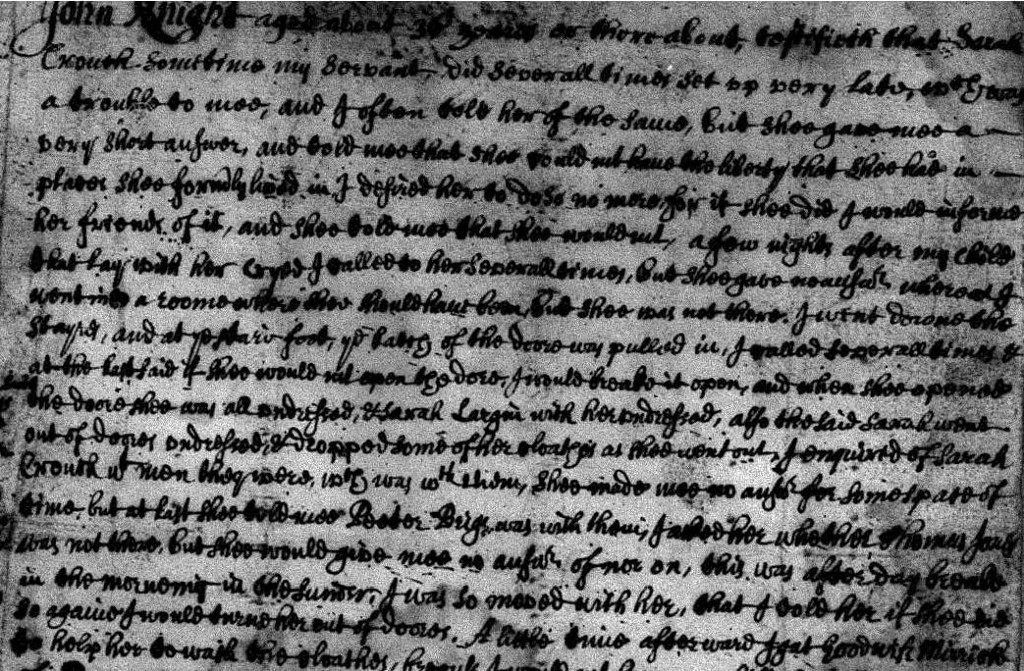 John Knight aged about years or thereabout, testifieth that Sarah
Crouch sometime my servant did severall times set up very late, wch was
a trouble to mee, and I often told her of the same, but shee gave mee a
very short answer, and told mee that shee could not have the liberty that shee had in
places shee formrly lived in. I desired her to doe so no more, for if shee did I would informe
her friends of it, and shee told mee that shee would not, a few nights after my child
that lay with her cryed I called to her severall times, but shee gave no ansr whereat I
went into a roome where shee should have been, but shee was not there. I went downe the
stayres, and at ye stair foot, ye latch of the doore was pulled in, I called severall times &
at the last said if shee would not open the dore, I would breake it open, and when shee opened
the doore shee was all undressed, & Sarah Largin with her undressed, also the said Sarah went
out of doores undressed, & dropped some of her cloaths as shee went out, I enquired of Sarah
Crouch wt men they were, wch was wth them, shee made mee no ansr for some space of
time, but at last shee told mee Peeter Brigs was with them, I asked her whether Thomas Jones
was not there, but shee would give mee no ansr of nor on, this was after day breake
in the morneing in the sumer. I was so moved with her, that I told her if shee did
so againe I would turne her out of doores. A little time afterward I gat goodwife
to help her to wash the cloathes,